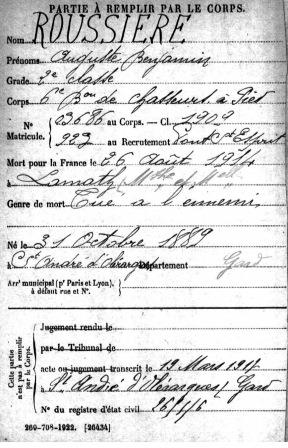 PARTIE À REMPLIR PAR LE CORPS.
Nom ROUSSIÈRE
Prénoms Auguste Benjamin
Grade 2e classe
Corps 6e Bon de Chasseurs à Pied
N° Matricule. 23686 au Corps. — Cl. 1909
992 au Recrutement Pont St Esprit
Mort pour la France le 26 Août 1914
à Lamath (Mthe et Mlle
Genre de mort Tué à l'ennemi
Né le 31 Octobre 1889
à St André d'Olérargues Département Gard
Arr municipal (pr Paris et Lyon),
à défaut rue et N°.
Cette partie n'est pas à remplir par le Corps.
Jugement rendu le
par le Tribunal de
acte ou jugement transcrit le 19 Mars 1917
à St André d'Olérargues, Gard
N° du registre d'état civil
269-708-1922. [26434]